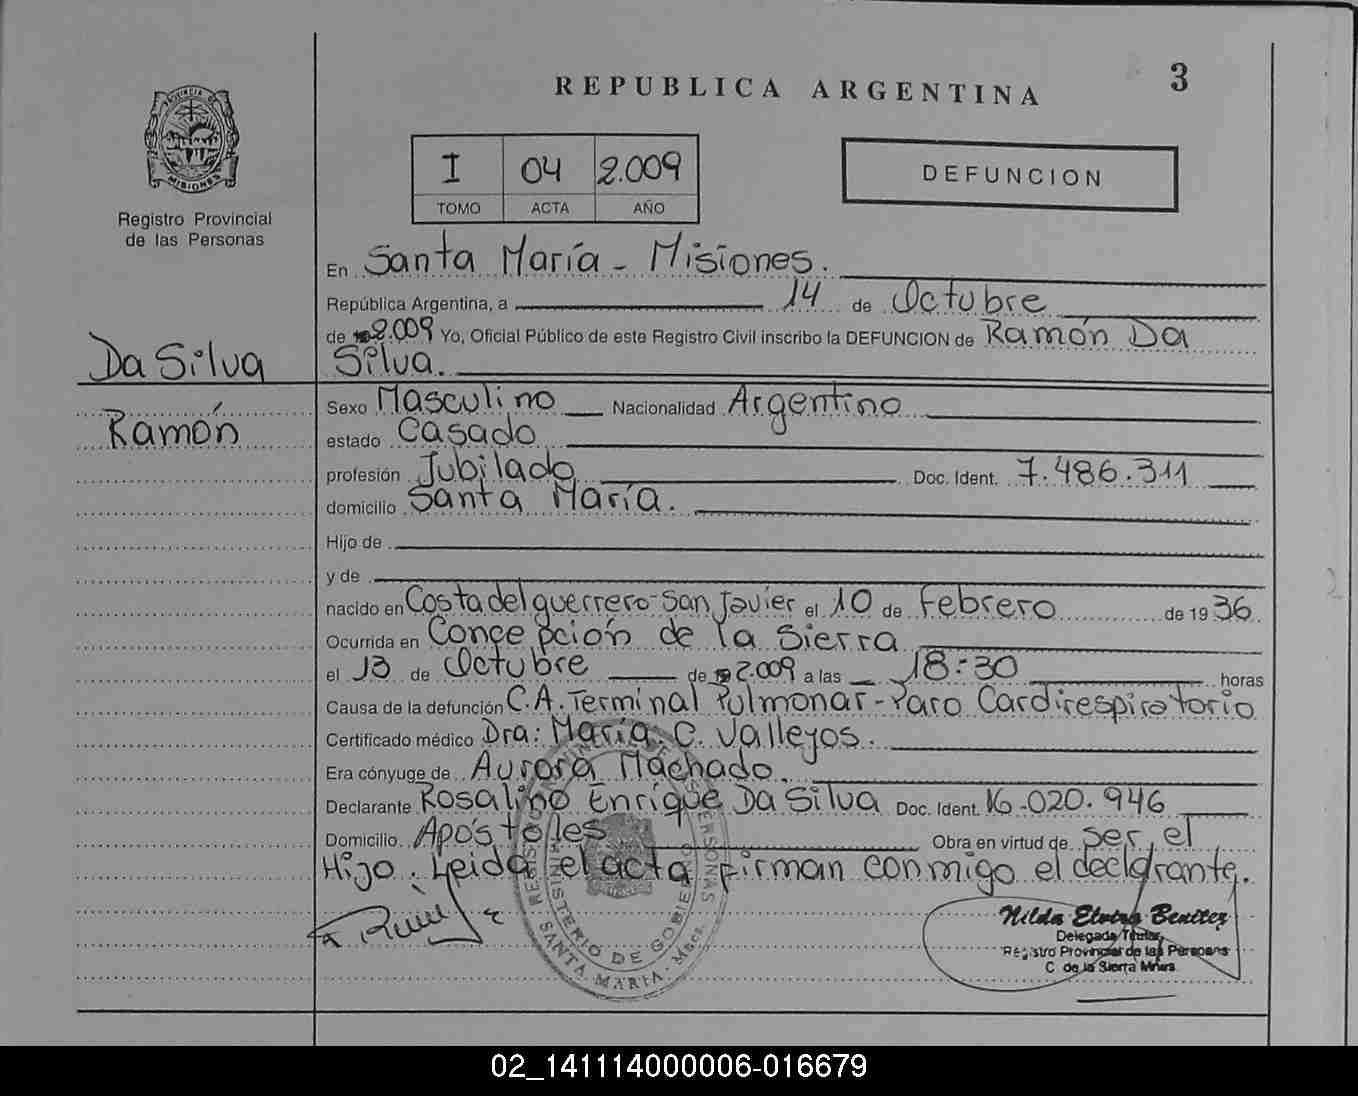 REPUBLICA ARGENTINA
3
PROVINCIA DE
MISIONES
Registro Provincial
de las Personas
I 04 2.009
TOMO ACTA AÑO
DEFUNCION
En Santa María - Misiones.
República Argentina, a 14 de Octubre
de 2.009 Yo, Oficial Público de este Registro Civil inscribo la DEFUNCION de Ramón Da
Silva.
Da Silva
Ramón
Sexo Masculino Nacionalidad Argentino
estado Casado
profesión Jubilado Doc. Ident. 7.486.311
domicilio Santa María.
Hijo de
y de
nacido en Costa del guerrero-San Javier el 10 de Febrero de 1936.
Ocurrida en Concepción de la Sierra
el 13 de Octubre de 2.009 a las 18:30 horas
Causa de la defunción C.A. Terminal Pulmonar - Paro Cardirespiratorio
Certificado médico Dra: María C. Vallejos.
Era cónyuge de Aurora Machado.
Declarante Rosalino Enrique Da Silva Doc. Ident. 16.020.946
Domicilio Apóstoles Obra en virtud de ser el
Hijo. Leida el acta firman conmigo el declarante.
MINISTERIO DE GOBIERNO
SANTA MARIA - Mnes.
Nilda Elvira Benitez
Delegada Titular
Registro Provincial de las Personas
C. de la Sierra Mnes.
02_141114000006-016679